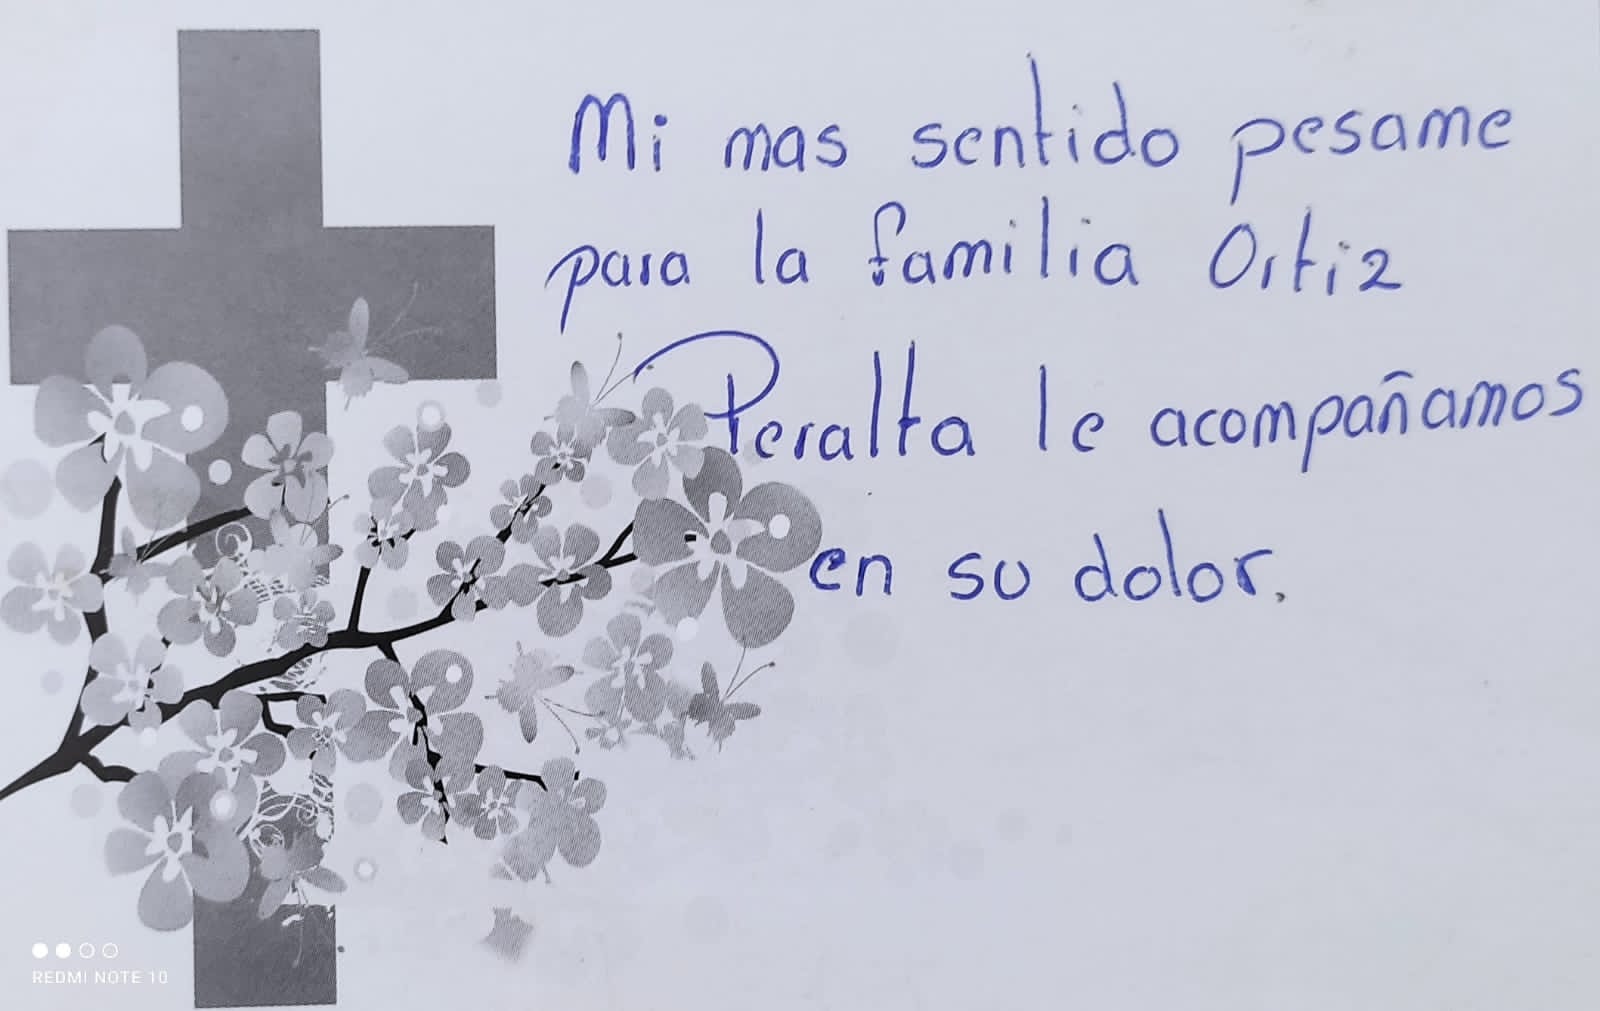 Mi mas sentido pesame
para la familia Ortiz
Peralta le acompañamos
en su dolor.
REDMI NOTE 10